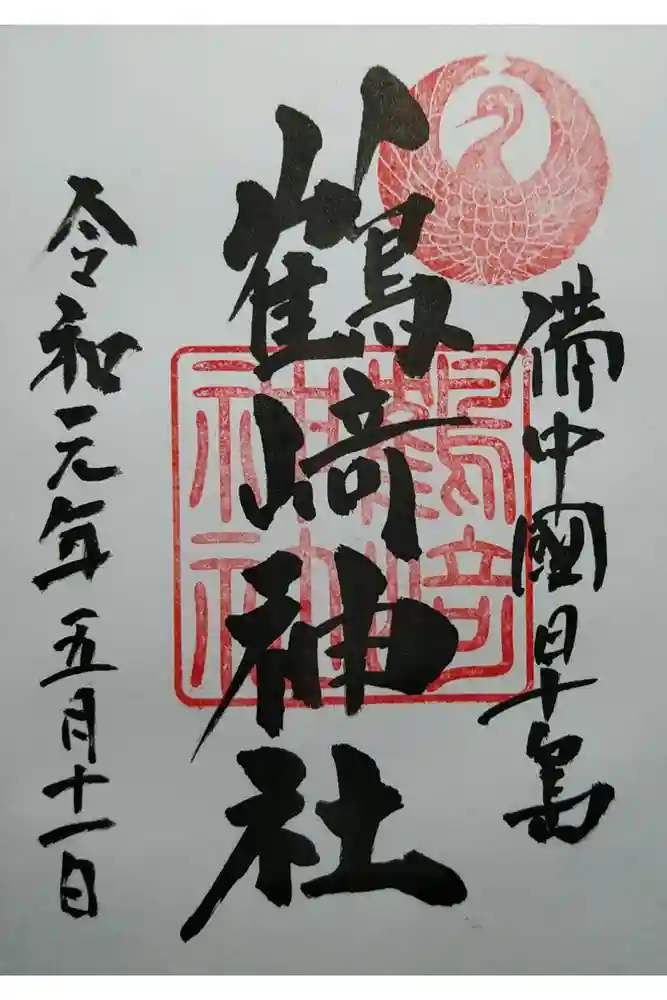 備中國早島
鶴﨑神社
令和元年五月十一日
鶴﨑
神社